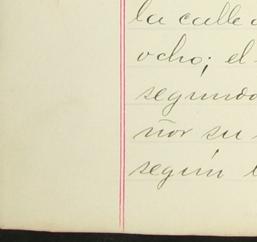 la calle
ocho; el
segundo
ñor su
según